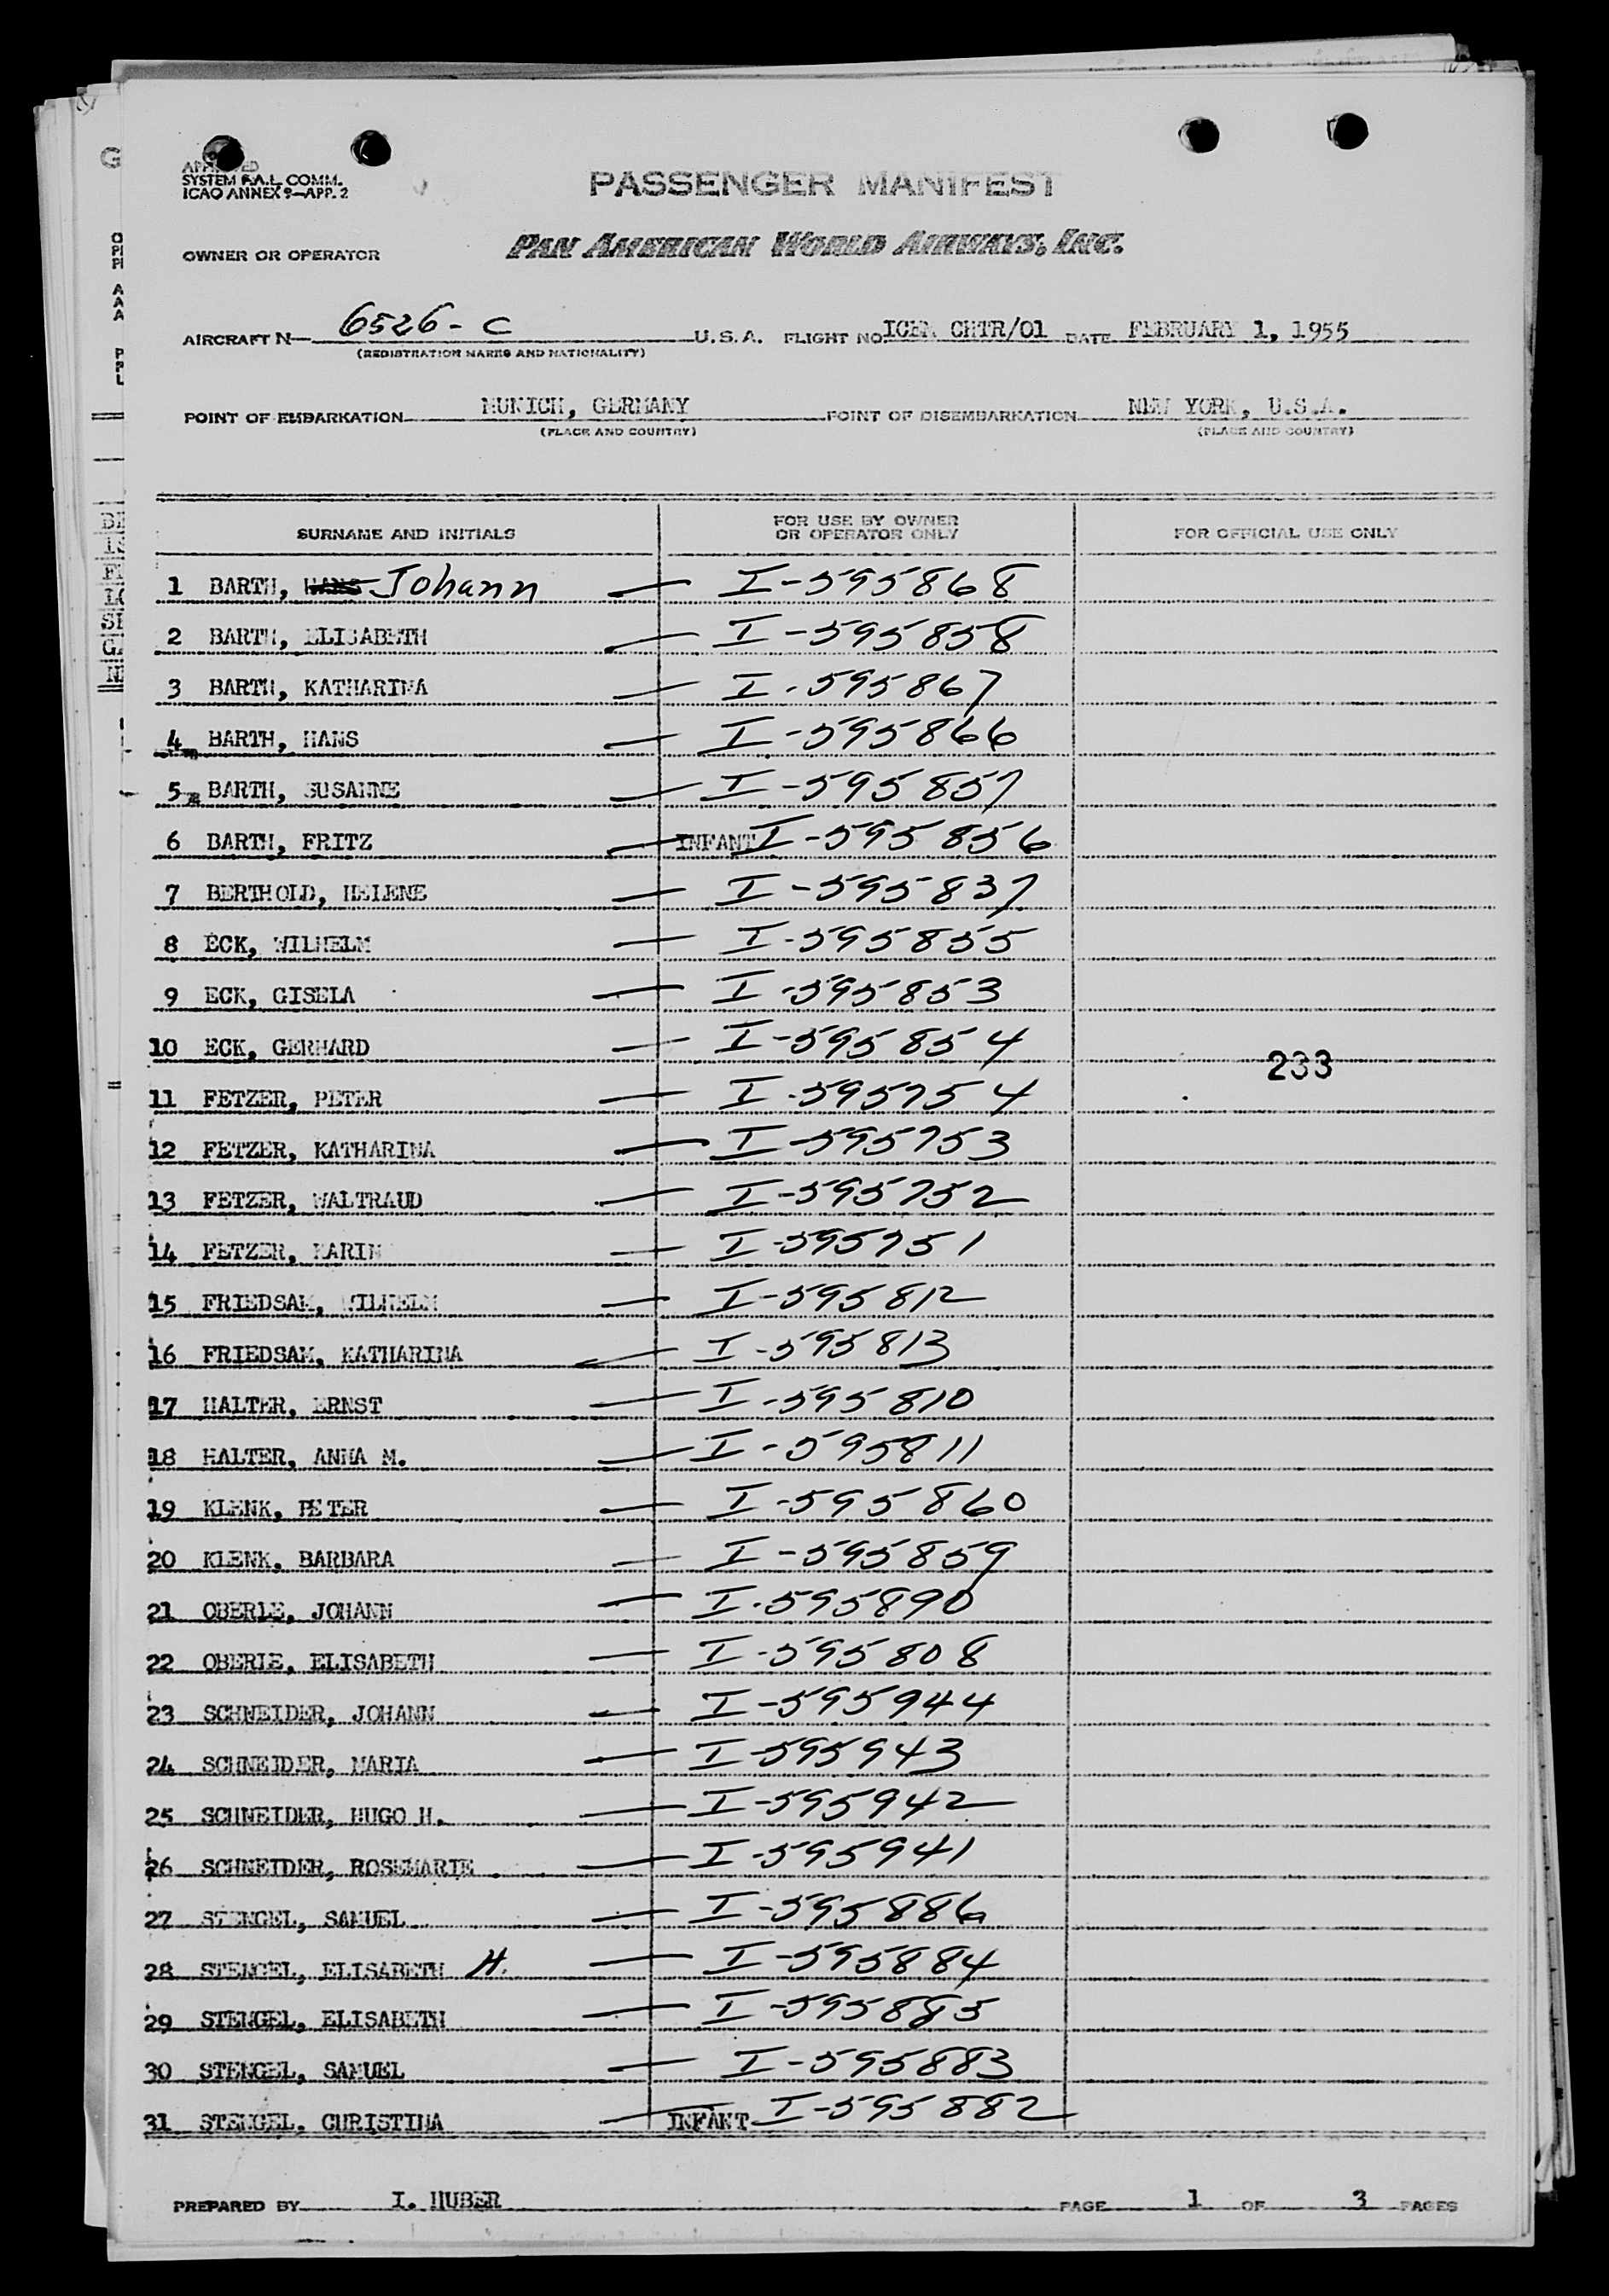 APPROVED
SYSTEM F.A.L. COMM.
ICAO ANNEX 9—APP. 2
PASSENGER MANIFEST
OWNER OR OPERATOR PAN AMERICAN WORLD AIRWAYS, INC.
AIRCRAFT N— 6526-C U.S.A. FLIGHT NO. ICEM CHTR/01 DATE FEBRUARY 1, 1955
(REGISTRATION MARKS AND NATIONALITY)
POINT OF EMBARKATION MUNICH, GERMANY POINT OF DISEMBARKATION NEW YORK, U.S.A.
(PLACE AND COUNTRY) (PLACE AND COUNTRY)
SURNAME AND INITIALS FOR USE BY OWNER OR OPERATOR ONLY FOR OFFICIAL USE ONLY
1 BARTH, HANS Johann — I-595868
2 BARTH, ELISABETH — I-595858
3 BARTH, KATHARINA — I-595867
4 BARTH, HANS — I-595866
5 BARTH, SUSANNE — I-595857
6 BARTH, FRITZ — INFANT I-595856
7 BERTHOLD, HELENE — I-595837
8 ECK, WILHELM — I-595855
9 ECK, GISELA — I-595853
10 ECK, GERHARD — I-595854
233
11 FETZER, PETER — I-595754
12 FETZER, KATHARINA — I-595753
13 FETZER, WALTRAUD — I-595752
14 FETZER, KARIN — I-595751
15 FRIEDSAM, WILHELM — I-595812
16 FRIEDSAM, KATHARINA — I-595813
17 HALTER, ERNST — I-595810
18 HALTER, ANNA M. — I-595811
19 KLENK, PETER — I-595860
20 KLENK, BARBARA — I-595859
21 OBERLE, JOHANN — I-595890
22 OBERLE, ELISABETH — I-595808
23 SCHNEIDER, JOHANN — I-595944
24 SCHNEIDER, MARIA — I-595943
25 SCHNEIDER, HUGO H. — I-595942
26 SCHNEIDER, ROSEMARIE — I-595941
27 STENGEL, SAMUEL — I-595886
28 STENGEL, ELISABETH H. — I-595884
29 STENGEL, ELISABETH — I-595885
30 STENGEL, SAMUEL — I-595883
31 STENGEL, CHRISTINA — INFANT I-595882
PREPARED BY I. HUBER PAGE 1 OF 3 PAGES